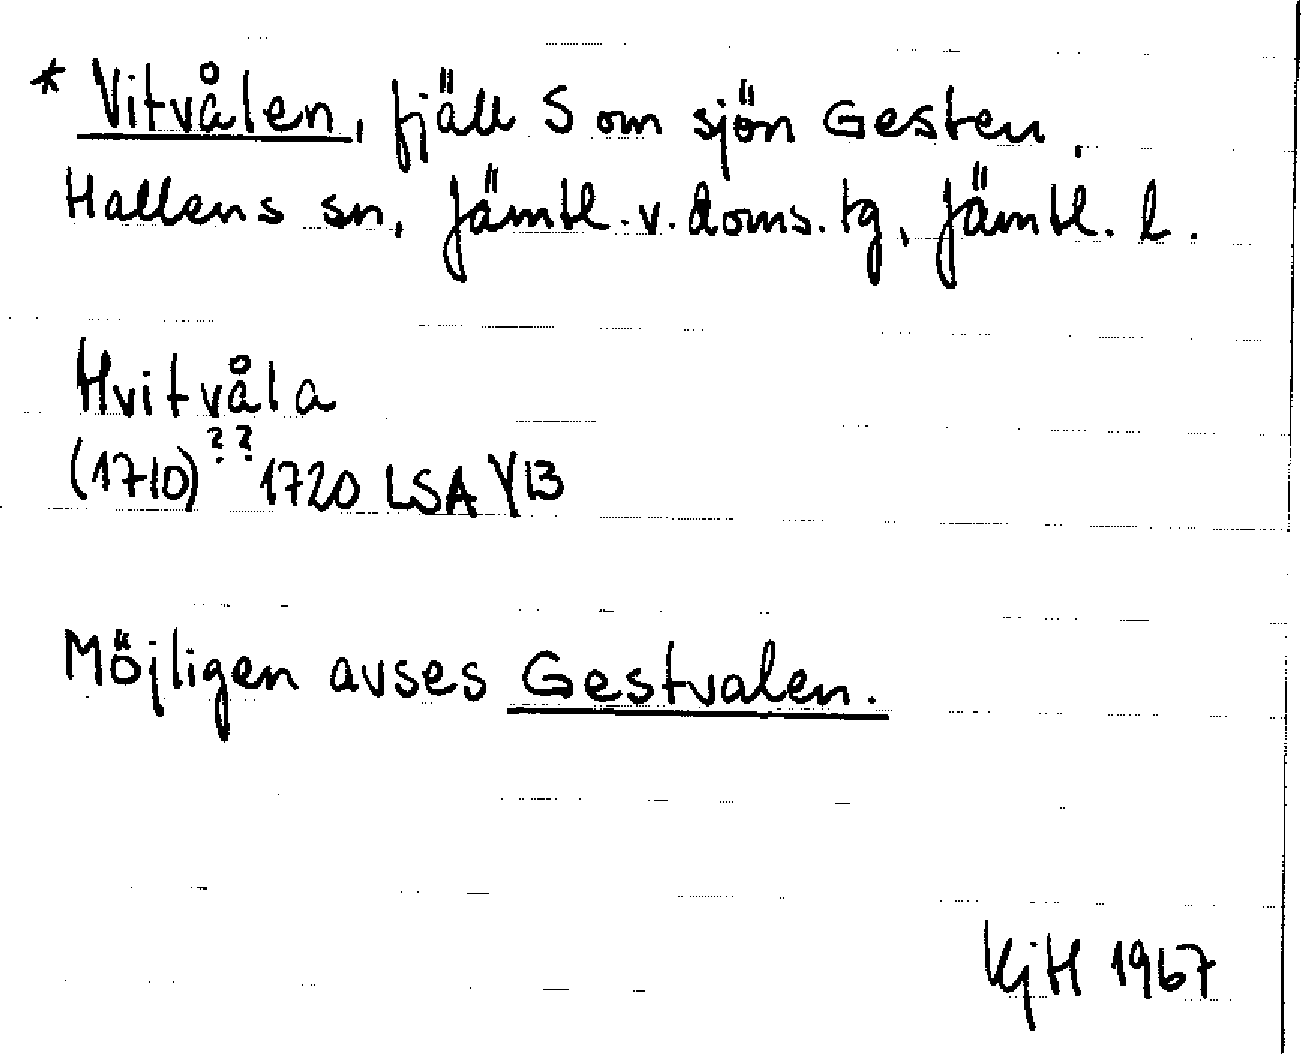 * Vitvålen, fjäll S om sjön Gesten.
Hallens sn, Jämtl. v. doms. tg, Jämtl. l.
Hvitvåla
(1710)?? 1720 LSA Y13
Möjligen avses Gestvalen.
KjH 1967